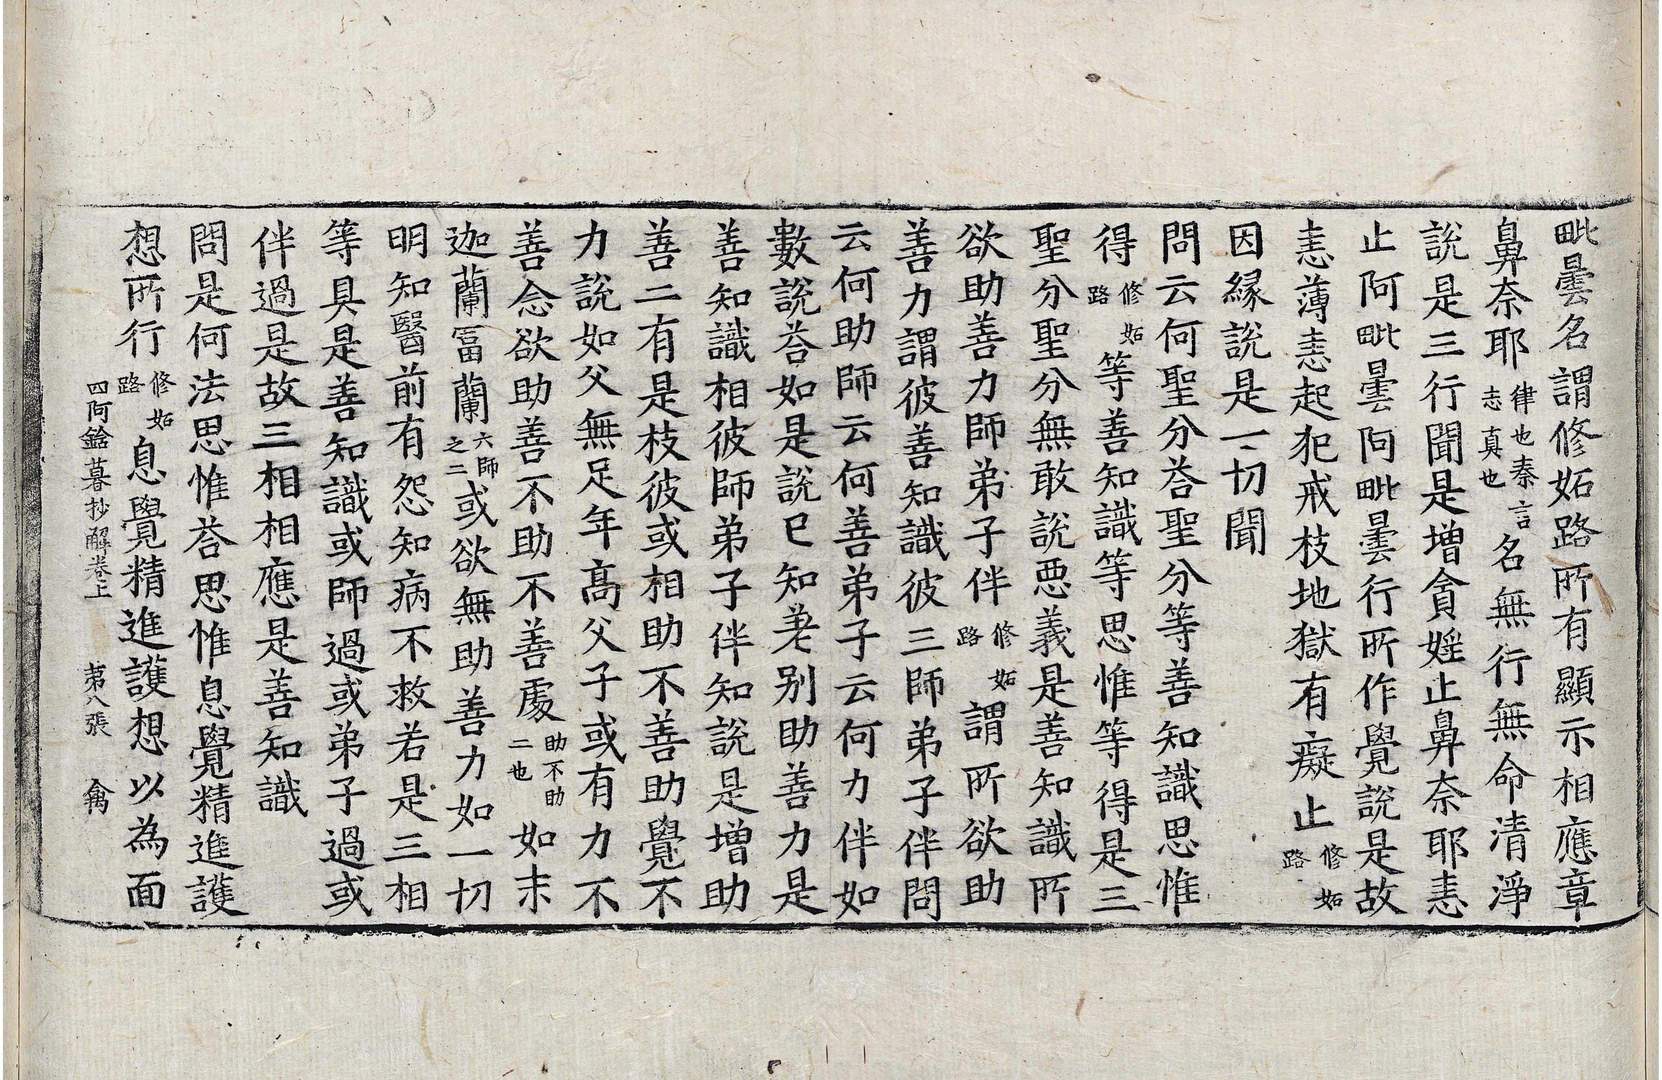 毗曇名謂修妬路所有顯示相應章
鼻奈耶律也秦言志真也名無行無命清淨
說是三行聞是增貪婬止鼻奈耶恚
止阿毗曇阿毗曇行所作覺說是故
恚薄恚起犯戒枝地獄有癡止修妬路
因緣說是一切聞
問云何聖分荅聖分等善知識思惟
得修妬路等善知識等思惟等得是三
聖分聖分無敢說惡義是善知識所
欲助善力師弟子伴修妬路謂所欲助
善力謂彼善知識彼三師弟子伴問
云何助師云何善弟子云何力伴如
數說荅如是說已知差别助善力是
善知識相彼師弟子伴知說是增助
善二有是枝彼或相助不善助覺不
力說如父無足年高父子或有力不
善念欲助善不助不善處助不助二也如末
迦蘭冨蘭六師之二或欲無助善力如一切
明知醫前有怨知病不救若是三相
等具是善知識或師過或弟子過或
伴過是故三相相應是善知識
問是何法思惟荅思惟息覺精進護
想所行修妬路息覺精進護想以為面
四阿鋡暮抄解卷上　第八張　禽